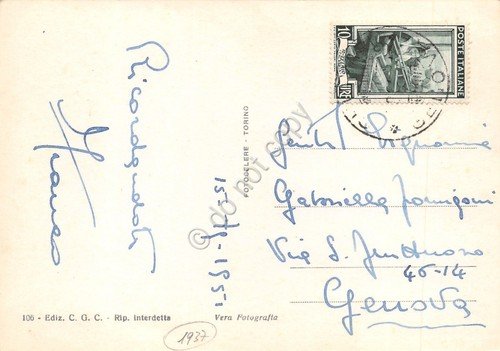 Ricordandoti
Franco
15-4-1951
FOTOCELERE - TORINO
POSTE ITALIANE
10
LIRE
Gent. Signorina
Gabriella
Via S.
46-14
Genova
106 - Ediz. C. G. C. - Rip. interdetta
Vera Fotografia
1937
do not copy